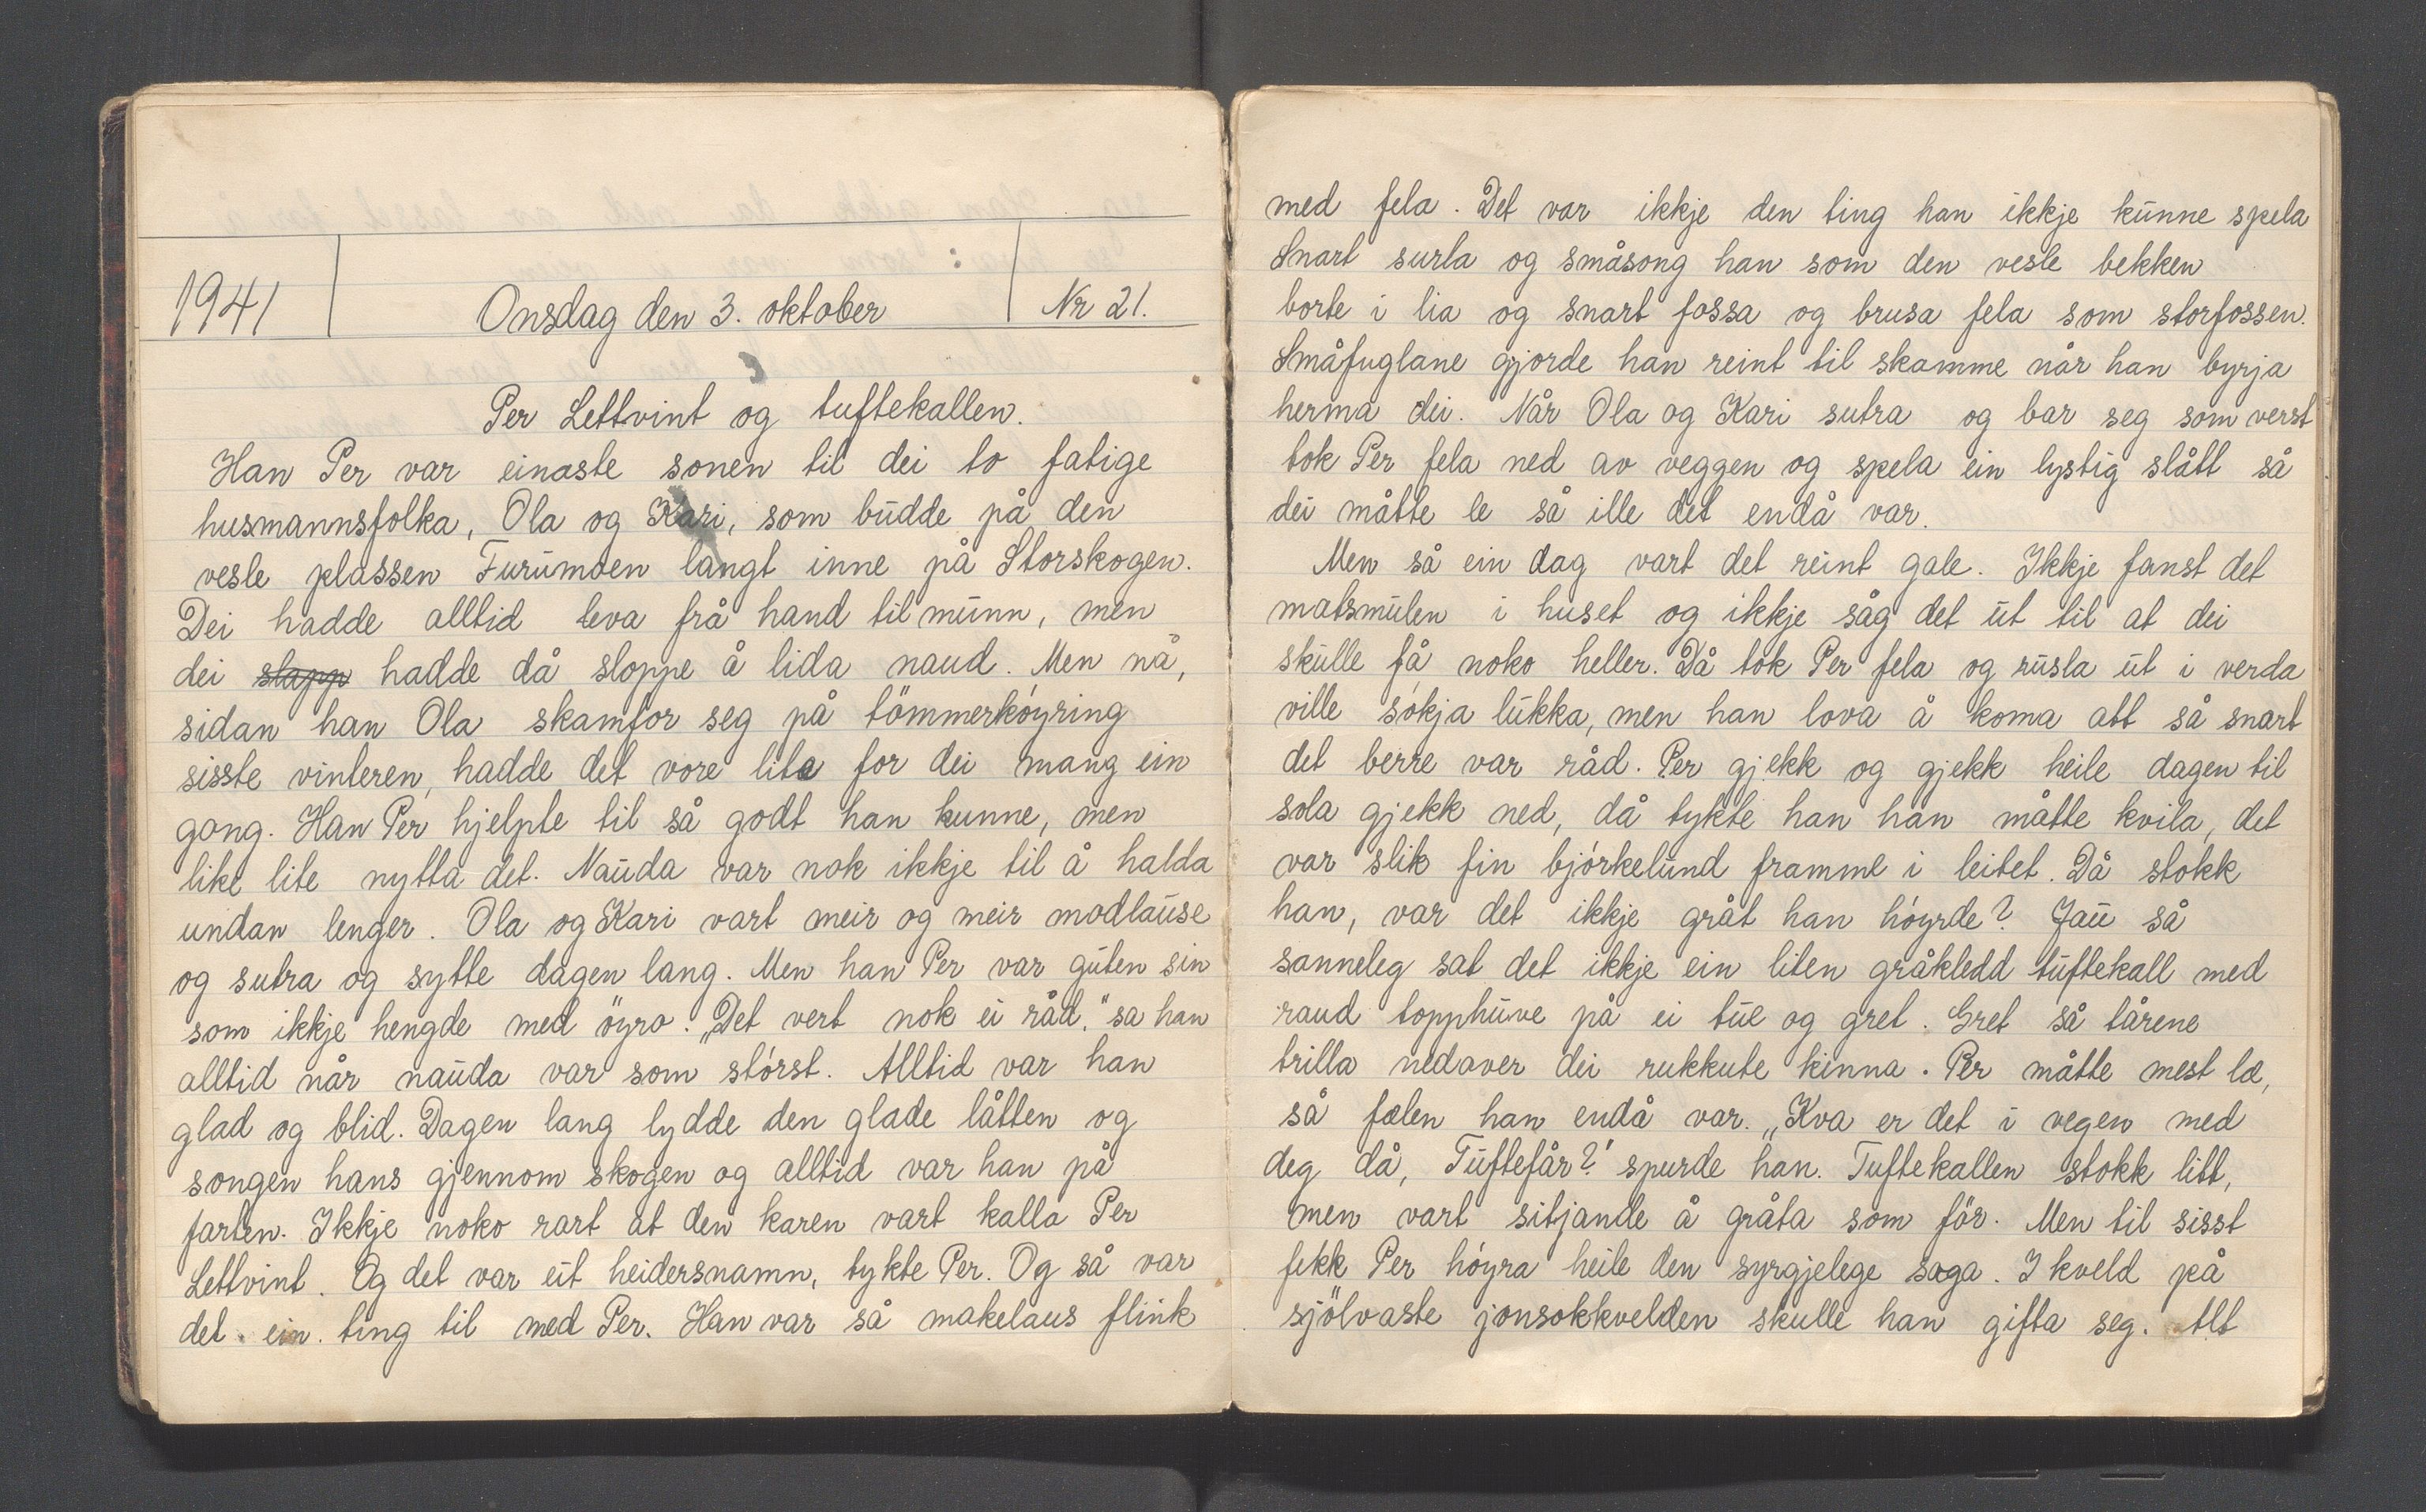 1941
Onsdag den 3. oktober
Nr 21.
Per Lettvint og tuftekallen.
Han Per var einaste sonen til dei to fatige
husmannsfolka, Ola og Kari, som budde på den
vesle plassen Furumoen langt inne på Storskogen.
Dei hadde alltid leva frå hand til munn, men
dei slapp hadde då sloppe å lida naud. Men nå,
sidan han Ola skamfor seg på tömmerköyring
sisste vinteren, hadde det vore lite for dei mang ein
gong. Han Per hjelpte til så godt han kunne, men
like lite nytta det. Nauda var nok ikkje til å halda
undan lenger. Ola og Kari vart meir og meir modlause
og sutra og sytte dagen lang. Men han Per var guten sin
som ikkje hengde med öyro. „Det vert nok ei råd," sa han
alltid når nauda var som störst. Alltid var han
glad og blid. Dagen lang lydde den glade låtten og
songen hans gjennom skogen og alltid var han på
farten. Ikkje noko rart at den karen vart kalla Per
Lettvint. Og det var eit heidersnamn, tykte Per. Og så var
det ein ting til med Per. Han var så makelaus flink
med fela. Det var ikkje den ting han ikkje kunne spela
Snart surla og småsong han som den vesle bekken
borte i lia og snart fossa og brusa fela som storfossen.
Småfuglane gjorde han reint til skamme når han byrja
herma dei. Når Ola og Kari sutra og bar seg som verst
tok Per fela ned av veggen og spela ein lystig slått så
dei måtte le så ille det endå var.
Men så ein dag vart det reint gale. Ikkje fanst det
matsmulen i huset og ikkje såg det ut til at dei
skulle få noko heller. Då tok Per fela og rusla ut i verda
ville sökja lukka, men han lova å koma att så snart
det berre var råd. Per gjekk og gjekk heile dagen til
sola gjekk ned, då tykte han han måtte kvila, det
var slik fin björkelund framme i leitet. Då stokk
han, var det ikkje gråt han höyrde? Jau så
sanneleg sat det ikkje ein liten gråkledd tuftekall med
raud topphuve på ei tue og gret. Gret så tårene
trilla nedover dei rukkute kinna. Per måtte mest læ,
så fælen han endå var. „Kva er det i vegen med
deg då, Tuftefår?" spurde han. Tuftekallen stokk litt,
men vart sitjande å gråta som för. Men til sisst
fekk Per höyra heile den syrgjelege saga. I kveld på
sjölvaste jonsokkvelden skulle han gifta seg. Alt